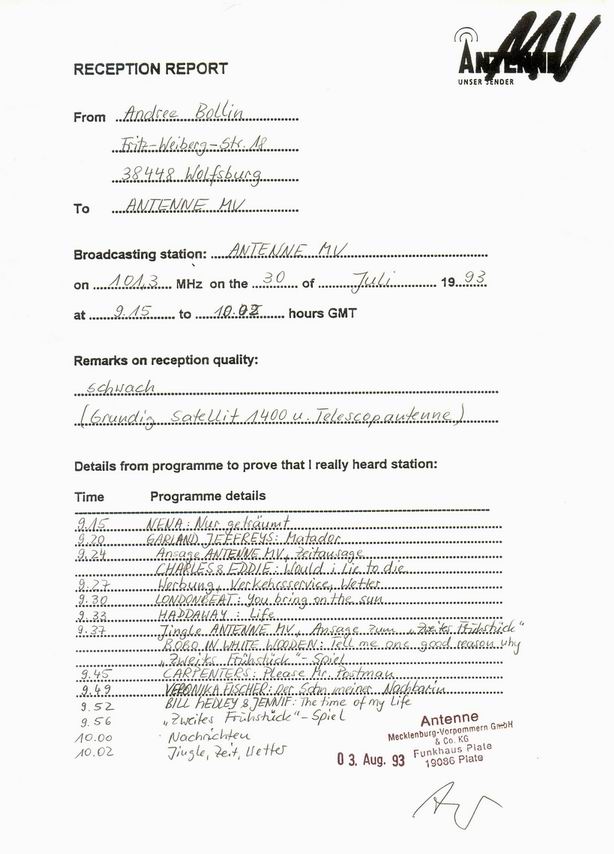 ANTENNE MV
UNSER SENDER
RECEPTION REPORT
From Andree Bollin
Fritz-Weiberg-Str. 18
38448 Wolfsburg
To ANTENNE MV
Broadcasting station: ANTENNE MV
on 101,3 MHz on the 30 of Juli 1993
at 9.15 to 10.02 hours GMT
Remarks on reception quality:
schwach
(Grundig Satellit 1400 u. Telescopantenne)
Details from programme to prove that I really heard station:
Time Programme details
9.15 NENA: Nur geträumt
9.20 GARLAND JEFFREYS: Matador
9.24 Ansage ANTENNE MV, Zeitansage
CHARLES & EDDIE: Would i lie to die
9.27 Werbung, Verkehrsservice, Wetter
9.30 LONDONBEAT: You bring on the sun
9.33 HADDAWAY: Life
9.37 Jingle ANTENNE MV, Ansage zum „Zweites Frühstück"
ROBO IN WHITE WOODEN: Tell me one good reason why
„Zweites Frühstück"-Spiel
9.45 CARPENTERS: Please Mr. Postman
9.49 VERONIKA FISCHER: Der Sohn meiner Nachbarin
9.52 BILL HEDLEY & JENNIF: The time of my life
9.56 „Zweites Frühstück"-Spiel
10.00 Nachrichten
10.02 Jingle, Zeit, Wetter
Antenne
Mecklenburg-Vorpommern GmbH
& Co. KG
Funkhaus Plate
19086 Plate
03. Aug. 93